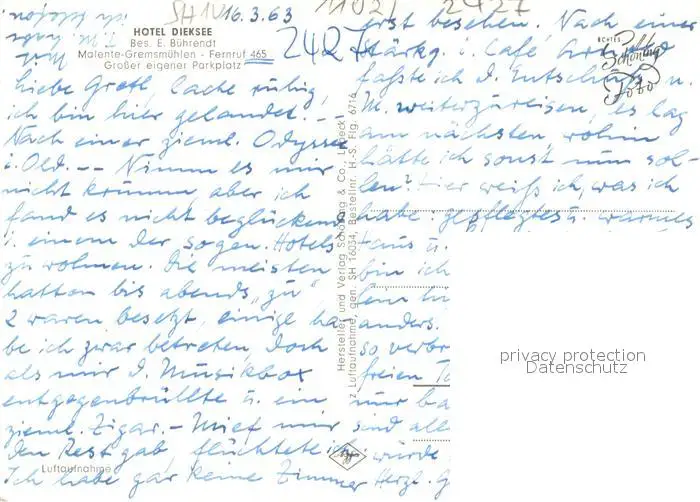 16.3.63
2427
HOTEL DIEKSEE
Bes. E. Bührendt
Malente-Gremsmühlen - Fernruf 465
Großer eigener Parkplatz
2427
Liebe Gretl, lache ruhig,
ich bin hier gelandet. -
Nach einer zieml. Odyssee
i. Old. -- Nimm es mir
nicht krumm, aber ich
fand es nicht beglückend
i. einem der sogen. Hotels
zu wohnen. Die meisten
hatten bis abends "zu"
2 waren besetzt, einige ha
be ich zwar betreten, doch
als mir d. Musikbox
entgegenbrüllte u. ein
zieml. Zigar.- Mief mir
den Rest gab, flüchtete ich.
Ich habe gar keine Zimmer
Luftaufnahme
Hersteller und Verlag Schöning & Co., Lübeck
Luftaufnahme, gen. SH 16034, Bestellnr. H.-S. Flg. 6716
ECHTES
Schöning
Foto
erst besehen. Nach einer
Stärkg. i. Café
faßte ich d. Entschluß n.
M. weiterzureisen, es lag
am nächsten, wohin
hätte ich sonst nun sol-
len? Hier weiß ich, was ich
habe: gepflegtes u. warmes
Haus u.
bin ich
anders.
so verbr
freien
nur
sind alle
würde
Herzl. G
privacy protection
Datenschutz